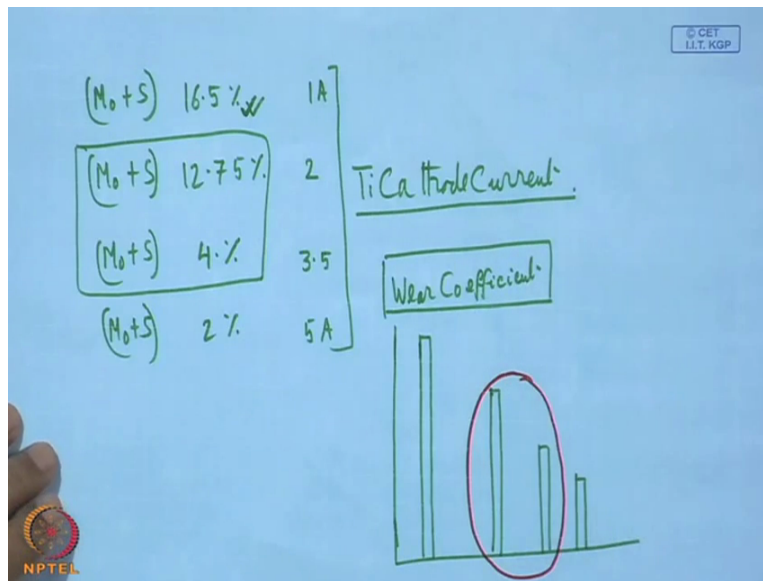 © CET
I.I.T. KGP
(Mo+S) 16.5% 1A
(Mo+S) 12.75% 2
(Mo+S) 4.% 3.5
(Mo+S) 2% 5A
Ti Cathode Current.
Wear Coefficient.
NPTEL